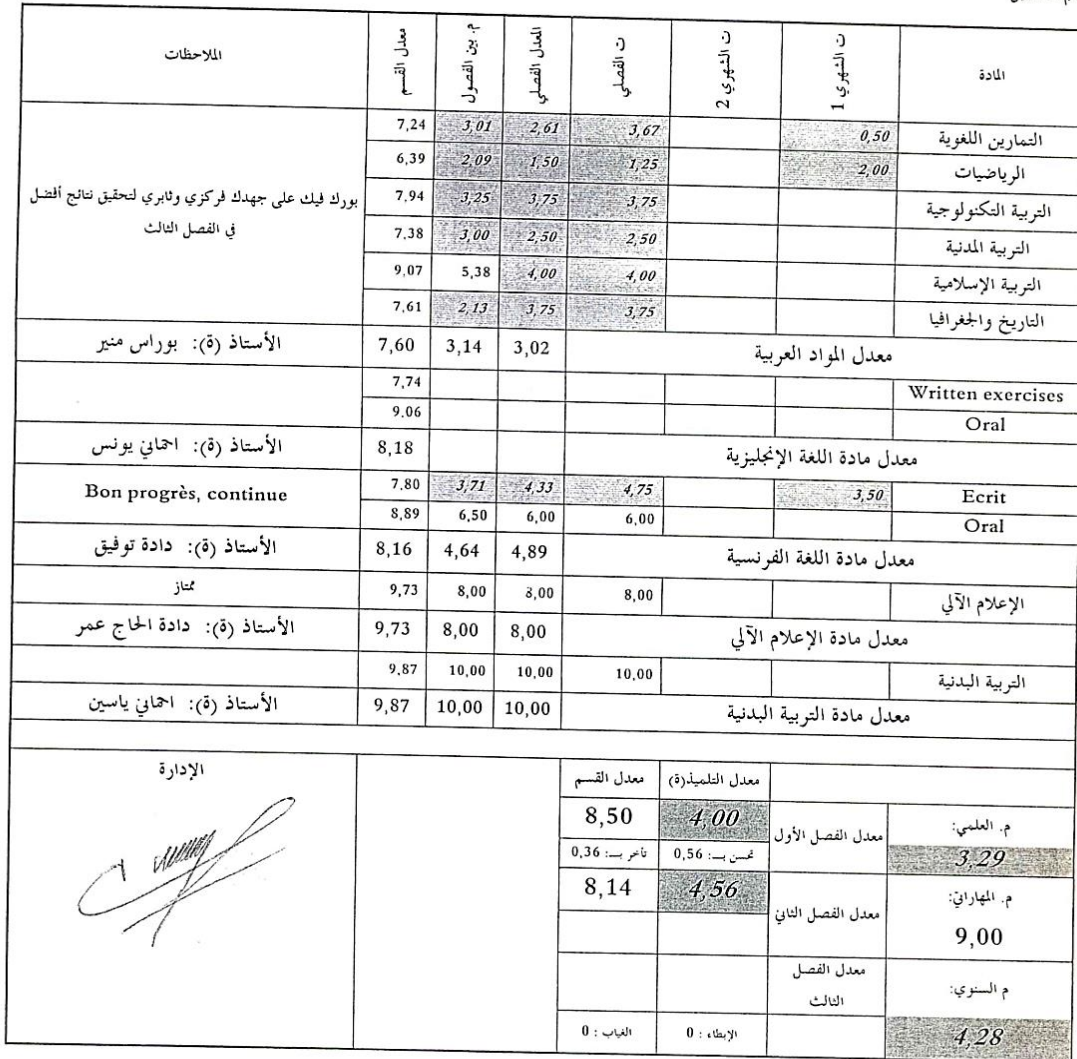 المادة ت الشهري 1 ت الشهري 2 ت الفصلي المعدل الفصلي م. بين الفصول معدل القسم الملاحظات
التمارين اللغوية 0,50 3,67 2,61 3,01 7,24
الرياضيات 2,00 1,25 1,50 2,09 6,39
التربية التكنولوجية 3,75 3,75 3,25 7,94
التربية المدنية 2,50 2,50 3,00 7,38
التربية الإسلامية 4,00 4,00 5,38 9,07
التاريخ والجغرافيا 3,75 3,75 2,13 7,61
بورك فيك على جهدك فركزي وثابري لتحقيق نتائج أفضل
في الفصل الثالث
معدل المواد العربية 3,02 3,14 7,60 الأستاذ (ة): بوراس منير
Written exercises 7,74
Oral 9.06
معدل مادة اللغة الإنجليزية 8,18 الأستاذ (ة): احماني يونس
Ecrit 3,50 4,75 4,33 3,71 7.80 Bon progrès, continue
Oral 6,00 6,00 6,50 8,89
معدل مادة اللغة الفرنسية 4,89 4,64 8,16 الأستاذ (ة): دادة توفيق
الإعلام الآلي 8,00 8,00 8,00 9,73 ممتاز
معدل مادة الإعلام الآلي 8,00 8,00 9,73 الأستاذ (ة): دادة الحاج عمر
التربية البدنية 10,00 10,00 10,00 9,87
معدل مادة التربية البدنية 10,00 10,00 9,87 الأستاذ (ة): احماني ياسين
معدل التلميذ(ة) معدل القسم الإدارة
م. العلمي: معدل الفصل الأول 4,00 8,50
3,29 تحسن بـ: 0,56 تأخر بـ: 0,36
م. المهاراتي: معدل الفصل الثاني 4,56 8,14
9,00
م السنوي: معدل الفصل
الثالث
4,28 الإبطاء : 0 الغياب : 0